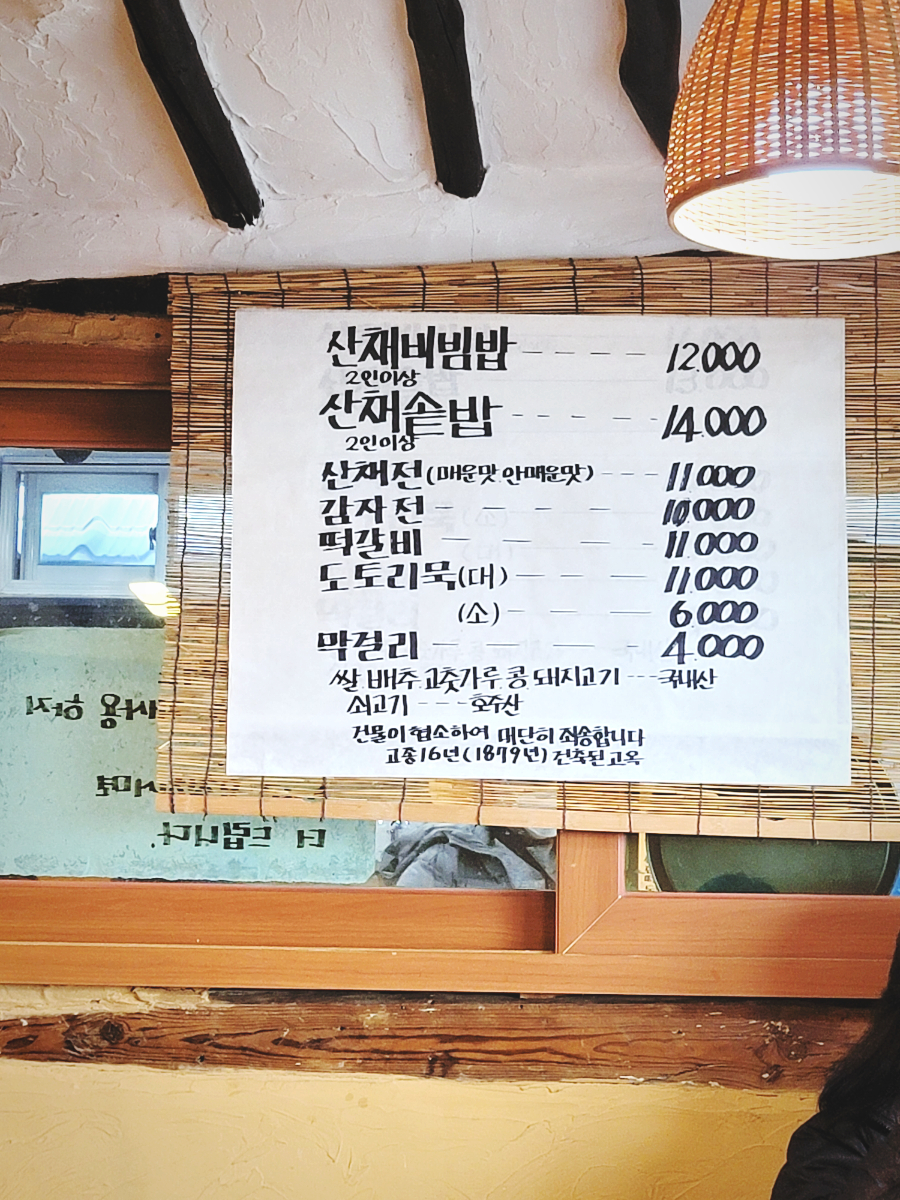 산채비빔밥 ---- 12.000
2인이상
산채솥밥 ---- 14.000
2인이상
산채전(매운맛 안매운맛) --- 11.000
감자전 ---- 10.000
떡갈비 ---- 11.000
도토리묵(대) --- 11.000
(소) --- 6.000
막걸리 ---- 4.000
쌀 배추 고춧가루 콩 돼지고기 ---국내산
쇠고기 ---호주산
건물이 협소하여 대단히 죄송합니다
고종16년(1879년) 건축된 고옥